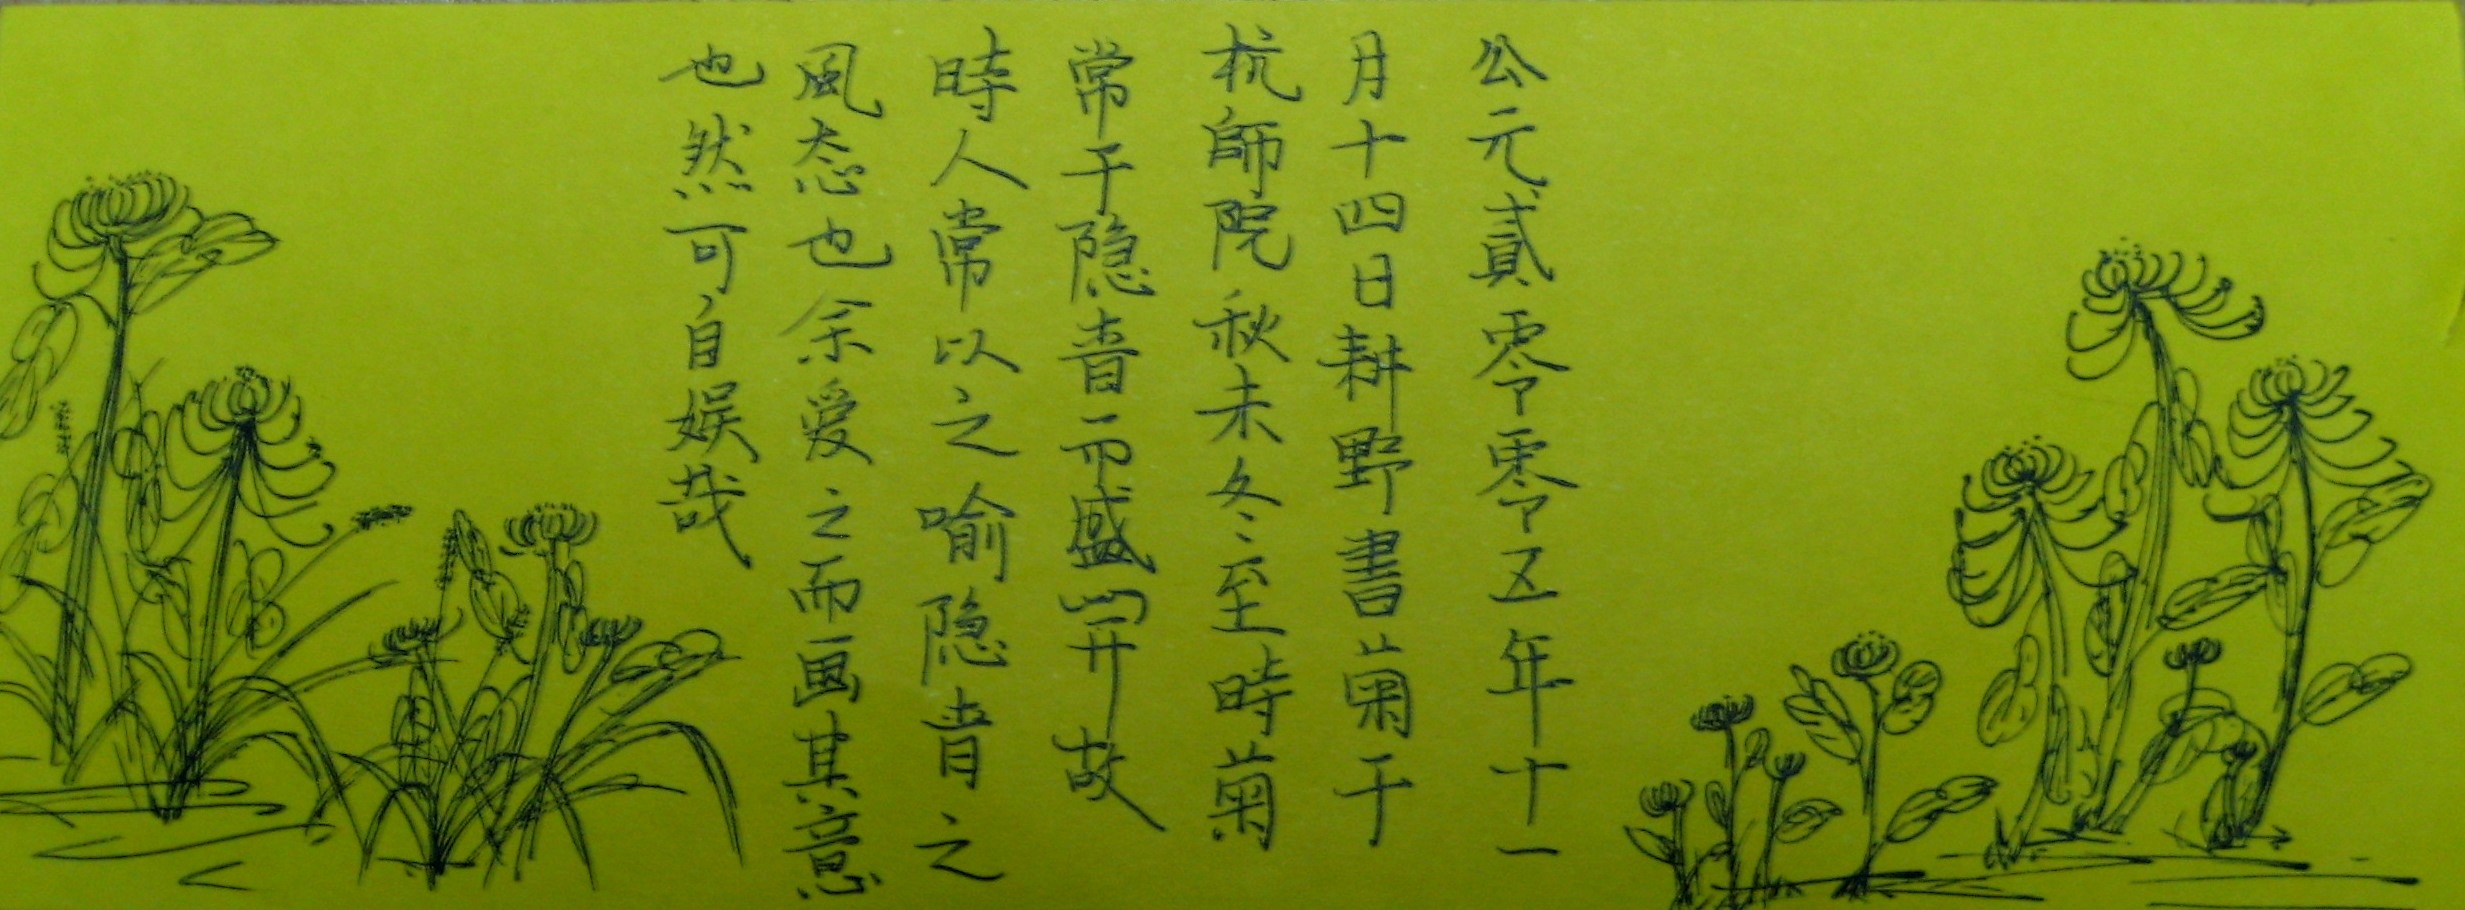 公元貳零零五年十一
月十四日耕野書菊于
杭師院秋未冬至時菊
常于隐者而盛開故
時人常以之喻隐者之
風态也余爱之而画其意
也然可自娱哉